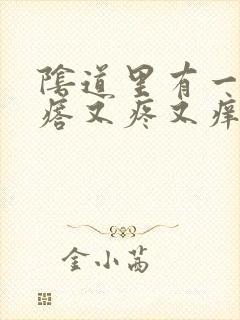 陰道里有一
瘩又疼又痒
金小茜